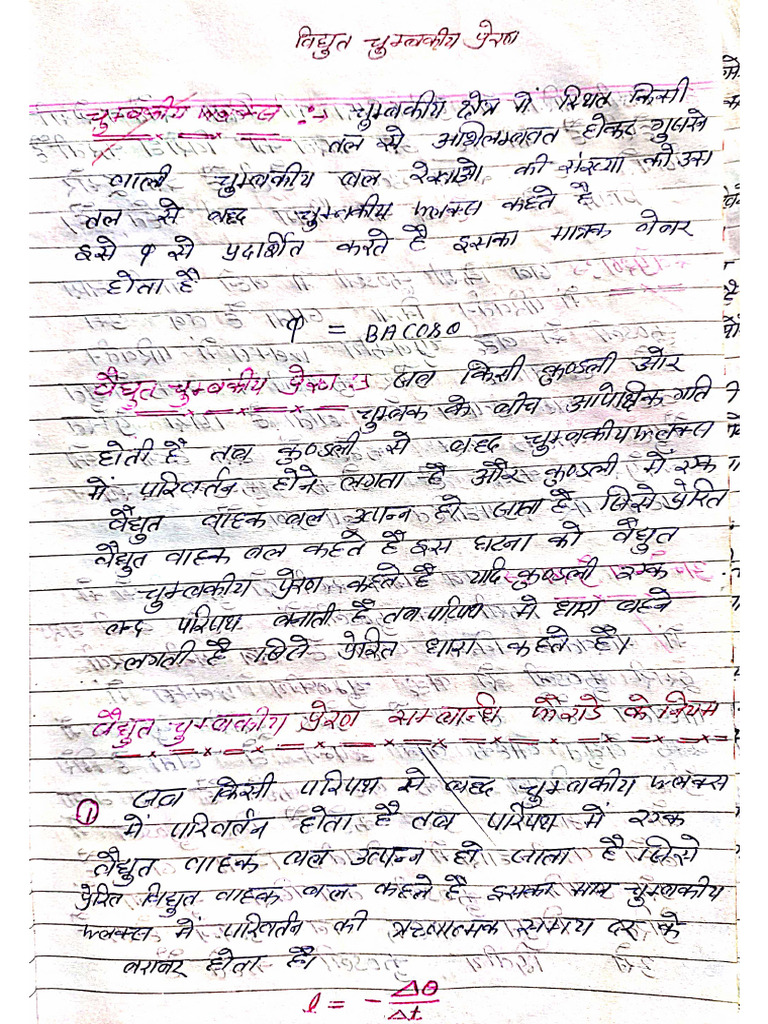 विद्युत चुम्बकीय प्रेरण
चुम्बकीय फ्लक्स :- चुम्बकीय क्षेत्र में स्थित किसी
तल से अभिलम्बवत होकर गुजरने
वाली चुम्बकीय बल रेखाओ की संख्या को उस
तल से बद्ध चुम्बकीय फ्लक्स कहते है
इसे φ से प्रदर्शित करते है इसका मात्रक वेबर
होता है
φ = BA COSθ
वैद्युत चुम्बकीय प्रेरण :- जब किसी कुण्डली और
चुम्बक के बीच आपेक्षिक गति
होती है तब कुण्डली से बद्ध चुम्बकीय फ्लक्स
में परिवर्तन होने लगता है और कुण्डली में एक
वैद्युत वाहक बल उत्पन्न हो जाता है जिसे प्रेरित
वैद्युत वाहक बल कहते है इस घटना को वैद्युत
चुम्बकीय प्रेरण कहते है यदि कुण्डली एक
बन्द परिपथ बनाती है तब परिपथ में धारा बहने
लगती है जिसे प्रेरित धारा कहते है।
वैद्युत चुम्बकीय प्रेरण सम्बन्धि फैराडे के नियम
① जब किसी परिपथ से बद्ध चुम्बकीय फ्लक्स
में परिवर्तन होता है तब परिपथ में एक
वैद्युत वाहक बल उत्पन्न हो जाता है जिसे
प्रेरित विद्युत वाहक बल कहते है इसका मान चुम्बकीय
फ्लक्स में परिवर्तन की ऋणात्मक समय दर के
बराबर होता है।
e = - Δθ/Δt